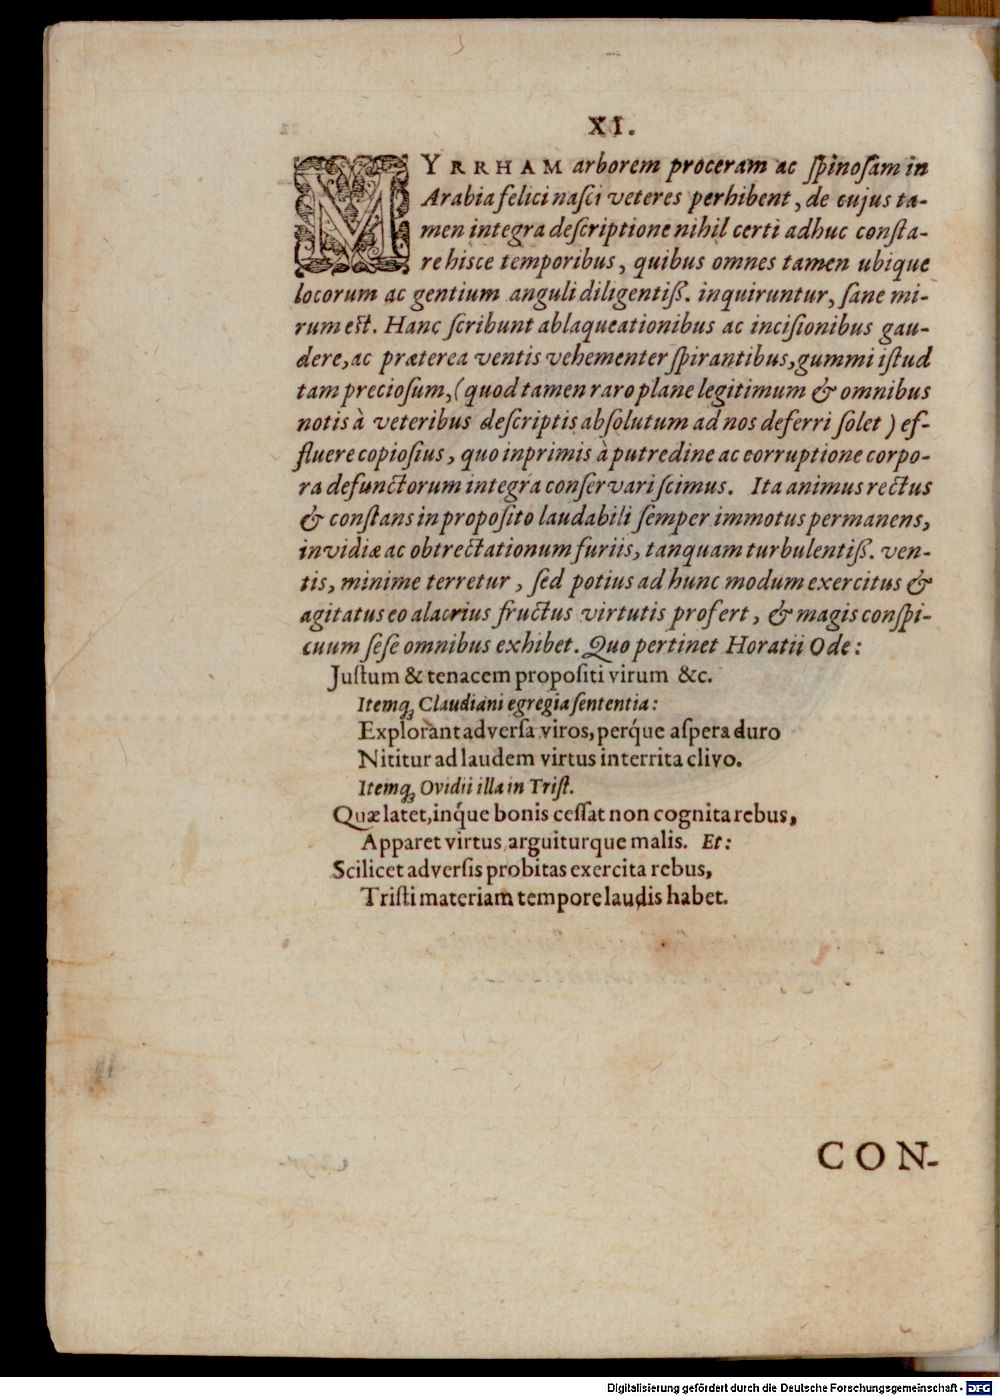 XI.
MYRRHAM arborem proceram ac ſpinoſam in
Arabia felici naſci veteres perhibent, de cujus ta-
men integra deſcriptione nihil certi adhuc conſta-
re hisce temporibus, quibus omnes tamen ubique
locorum ac gentium anguli diligentiß. inquiruntur, ſane mi-
rum eſt. Hanc ſcribunt ablaqueationibus ac inciſionibus gau-
dere, ac præterea ventis vehementer ſpirantibus, gummi iſtud
tam precioſum, (quod tamen raro plane legitimum & omnibus
notis à veteribus deſcriptis abſolutum ad nos deferri ſolet) ef-
fluere copioſius, quo inprimis à putredine ac corruptione corpo-
ra defunctorum integra conſervari ſcimus. Ita animus rectus
& conſtans in propoſito laudabili ſemper immotus permanens,
invidiæ ac obtrectationum furiis, tanquam turbulentiß. ven-
tis, minime terretur, ſed potius ad hunc modum exercitus &
agitatus eo alacrius fructus virtutis profert, & magis conſpi-
cuum ſeſe omnibus exhibet. Quo pertinet Horatii Ode:
Juſtum & tenacem propoſiti virum &c.
Itemq; Claudiani egregia ſententia:
Explorant adverſa viros, perq́ue aſpera duro
Nititur ad laudem virtus interrita clivo.
Itemq; Ovidii illa in Triſt.
Quæ latet, inq́ue bonis ceſſat non cognita rebus,
Apparet virtus arguiturque malis. Et:
Scilicet adverſis probitas exercita rebus,
Triſti materiam tempore laudis habet.
CON-
Digitalisierung gefördert durch die Deutsche Forschungsgemeinschaft - DFG